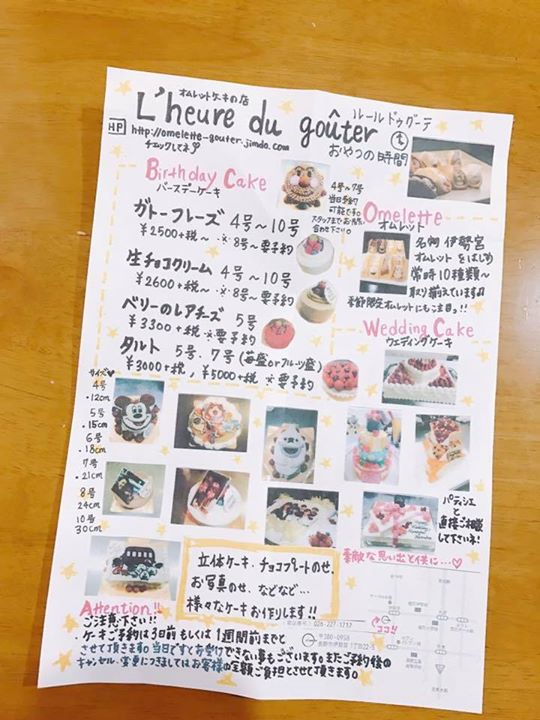 オムレットケーキの店
L'heure du goûter
ルールドゥグーテ
おやつの時間
HP
http://omelette-gouter.jimdo.com
チェックしてネ
Birthday Cake
バースデーケーキ
4号〜7号
当日予約
可能です。
スタッフまでお問い
合わせ下さい。
ガトーフレーズ 4号〜10号
¥2500+税〜 ※8号〜要予約
生チョコクリーム 4号〜10号
¥2600+税〜 ※8号〜要予約
ベリーのレアチーズ 5号
¥3300+税 ※要予約
タルト 5号・7号(苺盛orフルーツ盛)
¥3000+税, ¥5000+税 ※要予約
Omelette
オムレット
名物 伊勢宮
オムレットをはじめ
常時10種類〜
取り揃えています♫
季節限定オムレットにも注目!!
Wedding Cake
ウェディングケーキ
サイズ♡
4号
・12cm
5号
・15cm
6号
・18cm
7号
・21cm
8号
24cm
10号
30cm
パティシエ
と
直接ご相談
して下さいネ!
素敵な思い出と供に…♡
立体ケーキ・チョコプレートのせ、
お写真のせ、などなど…
様々なケーキお作りします!!
Attention!!
ご注意下さい!
・ケーキご予約は3日前もしくは1週間前までと
させて頂きます。当日ですとお受けできない事もございます。またご予約後の
キャンセル・変更につきましてはお客様の全額ご負担とさせて頂きます。
026-227-1717
〒380-0958
ココ!!